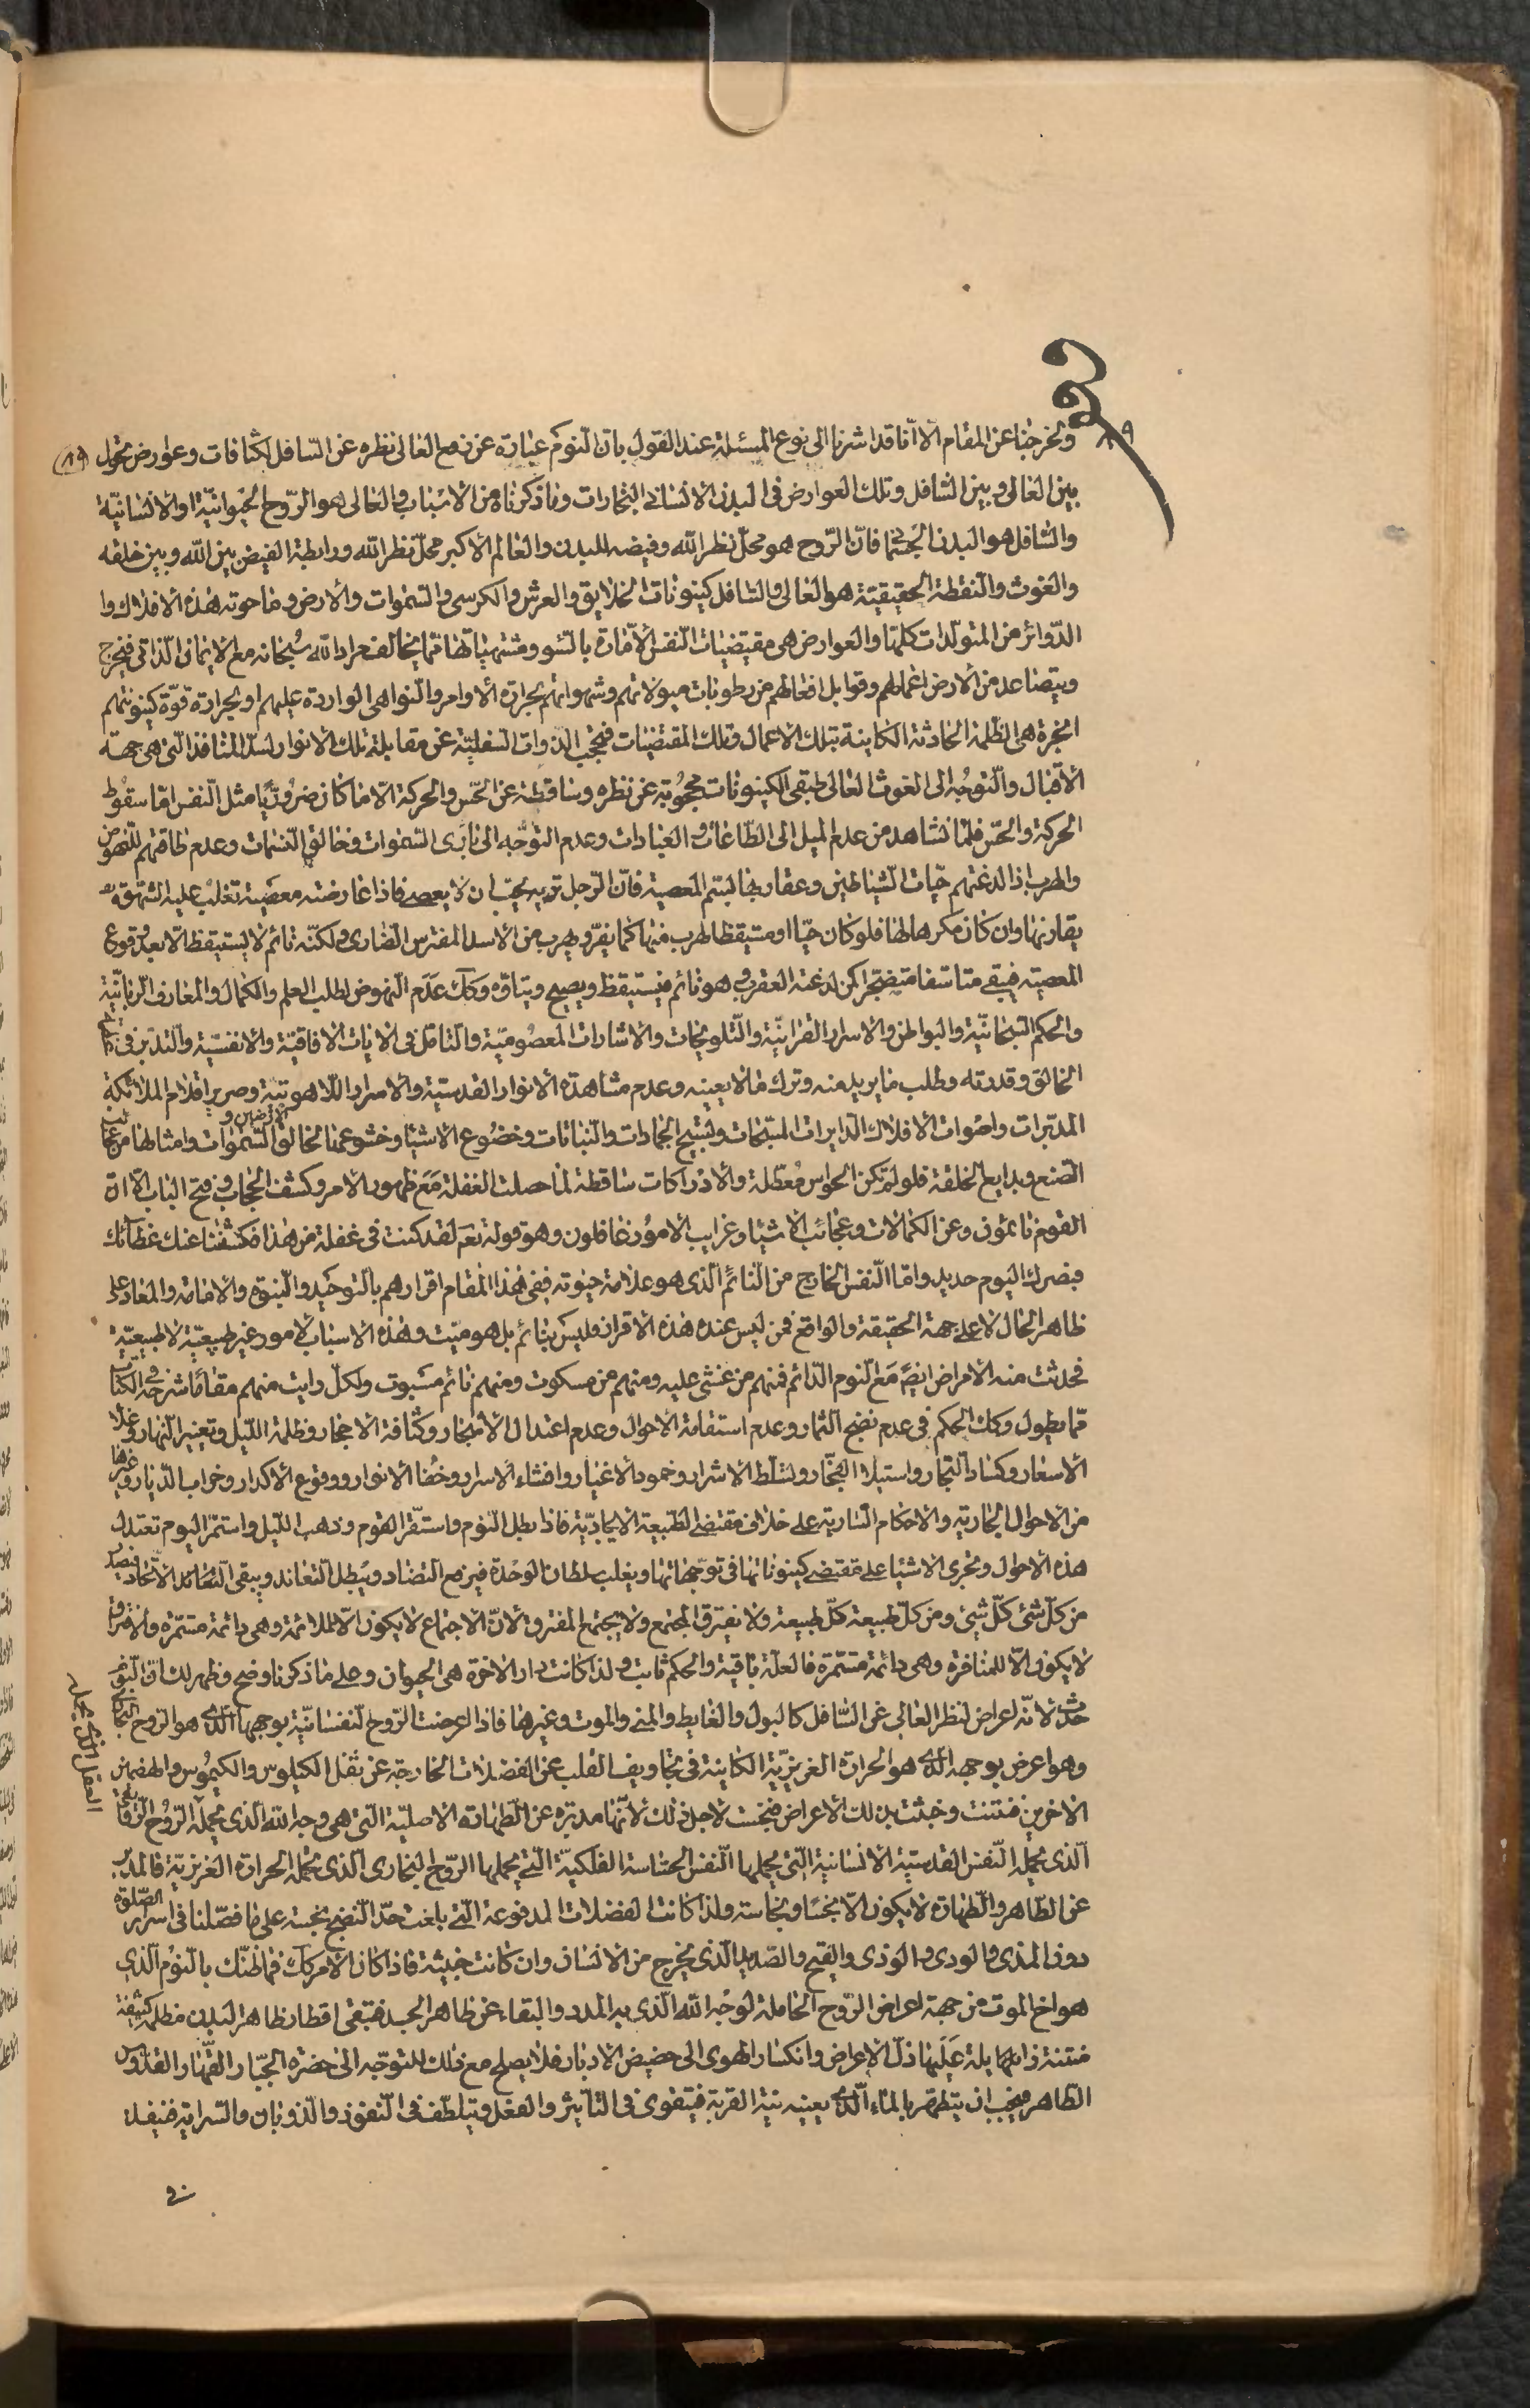 ١٩
ولخرجنا عن المقام الا انا قد اشرنا الى نوع المسئلة عند القول بان النوم عبارة عن رفع العالى نظره عن السافل لكثافات وعوارض تحول (١٩)
بين العالى وبين السافل وتلك العوارض فى البدن الانسانى البخارات وما ذكرناه من الاسباب والعالى هو الروح الحيوانية او الانسانية
والسافل هو البدن الجسمانى فان الروح هو محل نظر الله وفيضه للبدن والعالم الاكبر محل نظر الله ورابطة الفيض بين الله وبين خلقه
والغوث والنقطة الحقيقية هو العالى والسافل كينونات الخلايق والعرش والكرسى والسموات والارض وما حوته هذه الافلاك وا
الدوائر من المتولدات كلها والعوارض هى مقتضيات النفس الامارة بالسوء ومشتهياتها مما يخالف مراد الله سبحانه مع الايمان الذاتى فيخرج
ويتصاعد من الارض اعمالهم وقوابل افعالهم من رطوبات ميولاتهم وشهواتهم بحرارة الاوامر والنواهى الواردة عليهم او بحرارة قوة كينونتهم
ابخرة هى الظلمة الحادثة الكاينة بتلك الاعمال وتلك المقتضيات فيحجب الذوات السفلية عن مقابلة تلك الانوار لسد المنافذ التى هى جهة
الاقبال والتوجه الى الغوث العالى فتبقى الكينونات محجوبة عن نظره وساقطة عن الحس والحركة الا ما كان ضروريا مثل النفس اما سقوط
الحركة والحس فلما نشاهد من عدم الميل الى الطاعات والعبادات وعدم التوجه الى بارئ السموات وخالق النسمات وعدم طاقتهم للنهوض
والهرب اذا لدغتهم حيات الشياطين وعقاربها لسم المعصية فان الرجل تريه يحب ان لا يعصى فاذا عارضته معصية تغلب عليه الشهوة
يقارنها وان كان مكرها لها فلو كان حيا او مستيقظا لهرب منها كما يفر ويهرب من الاسد المفترس الضارى ولكنه نائم لا يستيقظ الا بعد وقوع
المعصية فيبقى متاسفا متضجرا كمن لدغته العقرب وهو نائم فيستيقظ ويصيح ويتاوه وكك عدم النهوض لطلب العلم والكمال والمعارف الربانية
والحكم السبحانية والبواطن والاسرار القرانية والتلويحات والاشارات المعصومية والتامل فى الايات الافاقية والانفسية والتدبر فى
الخالق وقدرته وطلب ما يريد منه وترك ما لا يعينه وعدم مشاهدة الانوار القدسية والاسرار اللاهوتية وصرير اقلام الملائكة
المدبرات واصوات الافلاك الدايرات المسبحات وتسبيح الجمادات والنباتات وخضوع الاشيا وخشوعها لخالق الارضين والسموات وامثالها من عجائب
الصنع وبدايع الخلقة فلو لم تكن الحواس معطلة والادراكات ساقطة لما حصلت الغفلة مع ظهور الامر وكشف الحجاب وفتح الباب الا ان
القوم نائمون وعن الكمالات وعجائب الاشيا وغرايب الامور غافلون وهو قوله تعم لقد كنت فى غفلة من هذا فكشفنا عنك غطائك
فبصرك اليوم حديد واما النفس الخارج من النائم الذى هو علامة حيوته ففى هذا المقام اقرارهم بالتوحيد والنبوة والامامة والمعاد على
ظاهر الحال لا على جهة الحقيقة والواقع فمن ليس عنده هذه الاقرار وليس بنائم بل هو ميت وهذه الاسباب لامور غير طبيعية لا طبيعية
فحدثت منه الامراض ايض مع النوم الدائم فمنهم من غشى عليه ومنهم من مسكوت ومنهم نائم مسبوت ولكل رايت منهم مقاما شرحه فى الكتاب
مما يطول وكك الحكم فى عدم نضج الثمار وعدم استقامة الاحوال وعدم اعتدال الاشجار وكثافة الاحجار وظلمة الليل وتغيير النهار وغلاء
الاسعار وكساد التجار واستيلاء الفجار وتسلط الاشرار وخمود الاخيار وافشاء الاسرار وخفاء الانوار ووقوع الاكدار وخراب الديار وغيرها
من الاحوال الجارية والاحكام السارية على خلاف مقتضى الطبيعة الايجادية فاذا بطل النوم واستقر القوم وذهب الليل واستمر اليوم تعتدل
هذه الاحوال وتجرى الاشيا على مقتضى كينوناتها فى توجهاتها ويغلب سلطان الوحدة فيرفع التضاد ويبطل التعاند ويبقى التعادل الاتحاد فيصدر
من كل شئ كل شئ ومن كل طبيعة كل طبيعة ولا يفترق المجتمع ولا يجتمع المفترق لان الاجتماع لا يكون الا للملائمة وهى دائمة مستمرة والافتراق
لا يكون الا للمنافرة وهى دائمة مستمرة فالعلة باقية والحكم ثابت ولذا كانت دار الاخرة هى الحيوان وعلى ما ذكرنا وضح وظهر لك ان النوم
حدث لانه اعراض لنظر العالى عن السافل كالبول والغايط والمنى والموت وغيرها فاذا اعرضت الروح النفسانية بوجهها الذى هو الروح البخارى
وهو اعرض بوجهه الذى هو الحرارة الغريزية الكاينة فى تجاويف القلب عن الفضلات الخارجة عن ثفل الكيلوس والكيموس والهضمين
الاخرين فنتنت وخبثت بذلك الاعراض فنجست لاجل ذلك لانها مدبرة عن الطهارة الاصلية التى هى وجه الله الذى يحمله الروح الرقايقى
العقل الذى يحمله
الذى يحمله النفس القدسية الانسانية التى يحملها النفس الحساسة الفلكية التى يحملها الروح البخارى الذى تحمله الحرارة الغريزية فالمدبر
عن الطاهر والطهارة لا يكون الا نجسا ونجاسة ولذا كانت الفضلات المدفوعة التى بلغت حد النضج نجسة على ما فصلنا فى اسرار الصلوة
دون المذى والودى والوذى والقيح والصديد الذى يخرج من الانسان وان كانت خبيثة فاذا كان الامر كك فما ظنك بالنوم الذى
هو اخ الموت من جهة اعراض الروح الحاملة لوجه الله الذى به المدد والبقاء عن ظاهر الجسد فتبقى اقطار ظاهر البدن مظلمة كثيفة
منتنة ذابلة عليها ذل الاعراض وانكسار الهوى الى حضيض الادبار فلا يصلح مع ذلك للتوجه الى حضرة الجبار القهار القدوس
الطاهر فيجب ان يتطهر بالماء الذى يعينه نية القربة فيتقوى فى التاثير والفعل ويتلطف فى النفوذ والذوبان والسراية فينفذ
فى